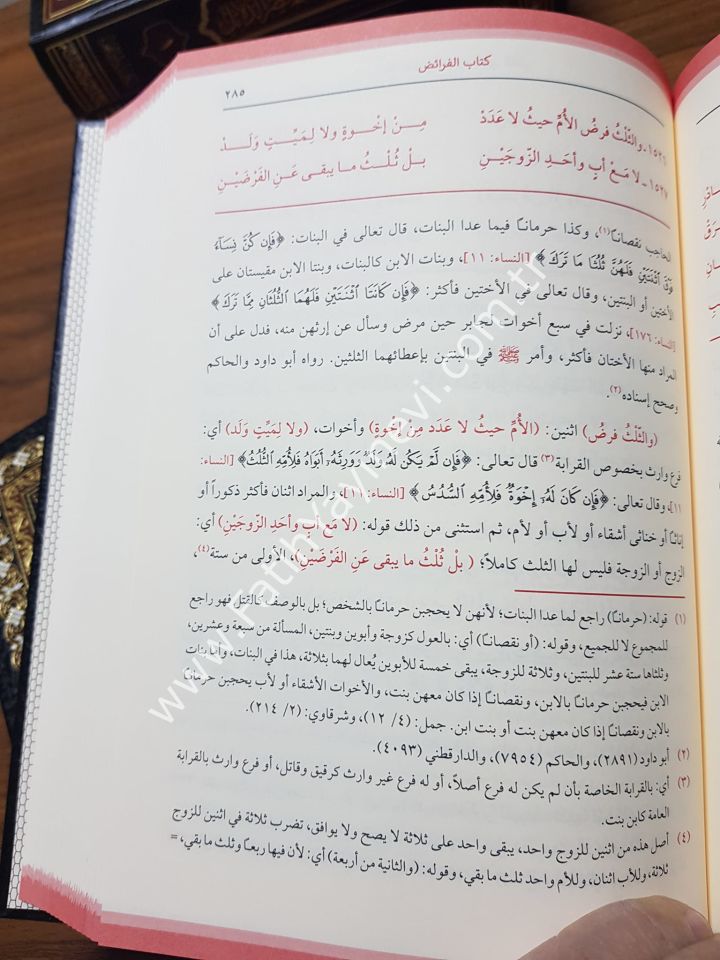 كتاب الفرائض
٢٨٥
١٥٢٦ - والثُّلْثُ فرضُ الأُمِّ حيثُ لا عَدَدْ مِنْ إخْوةٍ ولا لِمَيِّتٍ وَلَدْ
١٥٢٧ - لا مَعْ أبٍ وأحَدِ الزّوجَيْنِ بلْ ثُلْثُ ما يبقى عَنِ الفَرْضَيْنِ
الحاجب نقصانًا(١)، وكذا حرمانًا فيما عدا البنات، قال تعالى في البنات: ﴿فَإِن كُنَّ نِسَآءً
فَوْقَ ٱثْنَتَيْنِ فَلَهُنَّ ثُلُثَا مَا تَرَكَ﴾ [النساء: ١١]، وبنات الابن كالبنات، وبنتا الابن مقيستان على
الأختين أو البنتين، وقال تعالى في الأختين فأكثر: ﴿فَإِن كَانَتَا ٱثْنَتَيْنِ فَلَهُمَا ٱلثُّلُثَانِ مِمَّا تَرَكَ﴾
[النساء: ١٧٦]، نزلت في سبع أخوات لجابر حين مرض وسأل عن إرثهن منه، فدل على أن
المراد منها الأختان فأكثر، وأمر ﷺ في البنتين بإعطائهما الثلثين. رواه أبو داود والحاكم
وصحح إسناده(٢).
(والثُّلْثُ فرضُ) اثنين: (الأُمِّ حيثُ لا عَدَد مِنْ إخوةٍ) وأخوات، (ولا لِمَيِّتٍ وَلَد) أي:
فرع وارث بخصوص القرابة(٣) قال تعالى: ﴿فَإِن لَّمْ يَكُن لَّهُۥ وَلَدٌ وَوَرِثَهُۥٓ أَبَوَاهُ فَلِأُمِّهِ ٱلثُّلُثُ﴾ [النساء:
١١]، وقال تعالى: ﴿فَإِن كَانَ لَهُۥٓ إِخْوَةٌ فَلِأُمِّهِ ٱلسُّدُسُ﴾ [النساء: ١١]، والمراد اثنان فأكثر ذكورًا أو
إناثًا أو خناثى أشقاء أو لأب أو لأم، ثم استثنى من ذلك قوله: (لا مَعَ أبٍ وأحدِ الزّوجَيْنِ) أي:
الزوج أو الزوجة فليس لها الثلث كاملاً؛ (بلْ ثُلْثُ ما يبقى عَنِ الفَرْضَيْنِ)، الأولى من ستة(٤)،
(١) قوله: (حرمانًا) راجع لما عدا البنات؛ لأنهن لا يحجبن حرمانًا بالشخص؛ بل بالوصف كالقتل فهو راجع
للمجموع لا للجميع، وقوله: (أو نقصانًا) أي: بالعول كزوجة وأبوين وبنتين، المسألة من سبعة وعشرين،
وثلثاها ستة عشر للبنتين، وثلاثة للزوجة، يبقى خمسة للأبوين يُعال لهما بثلاثة، هذا في البنات، وأما بنات
الابن فيحجبن حرمانًا بالابن، ونقصانًا إذا كان معهن بنت، والأخوات الأشقاء أو لأب يحجبن حرمانًا
بالابن ونقصانًا إذا كان معهن بنت أو بنت ابن. جمل: (٤/ ١٢)، وشرقاوي: (٢/ ٢١٤).
(٢) أبو داود (٢٨٩١)، والحاكم (٧٩٥٤)، والدارقطني (٤٠٩٣).
(٣) أي: بالقرابة الخاصة بأن لم يكن له فرع أصلاً، أو له فرع غير وارث كرقيق وقاتل، أو فرع وارث بالقرابة
العامة كابن بنت.
(٤) أصل هذه من اثنين للزوج واحد، يبقى واحد على ثلاثة لا يصح ولا يوافق، تضرب ثلاثة في اثنين للزوج
ثلاثة، وللأب اثنان، وللأم واحد ثلث ما بقي، وقوله: (والثانية من أربعة) أي: لأن فيها ربعًا وثلث ما بقي، =
www.FatihYayinevi.com.tr